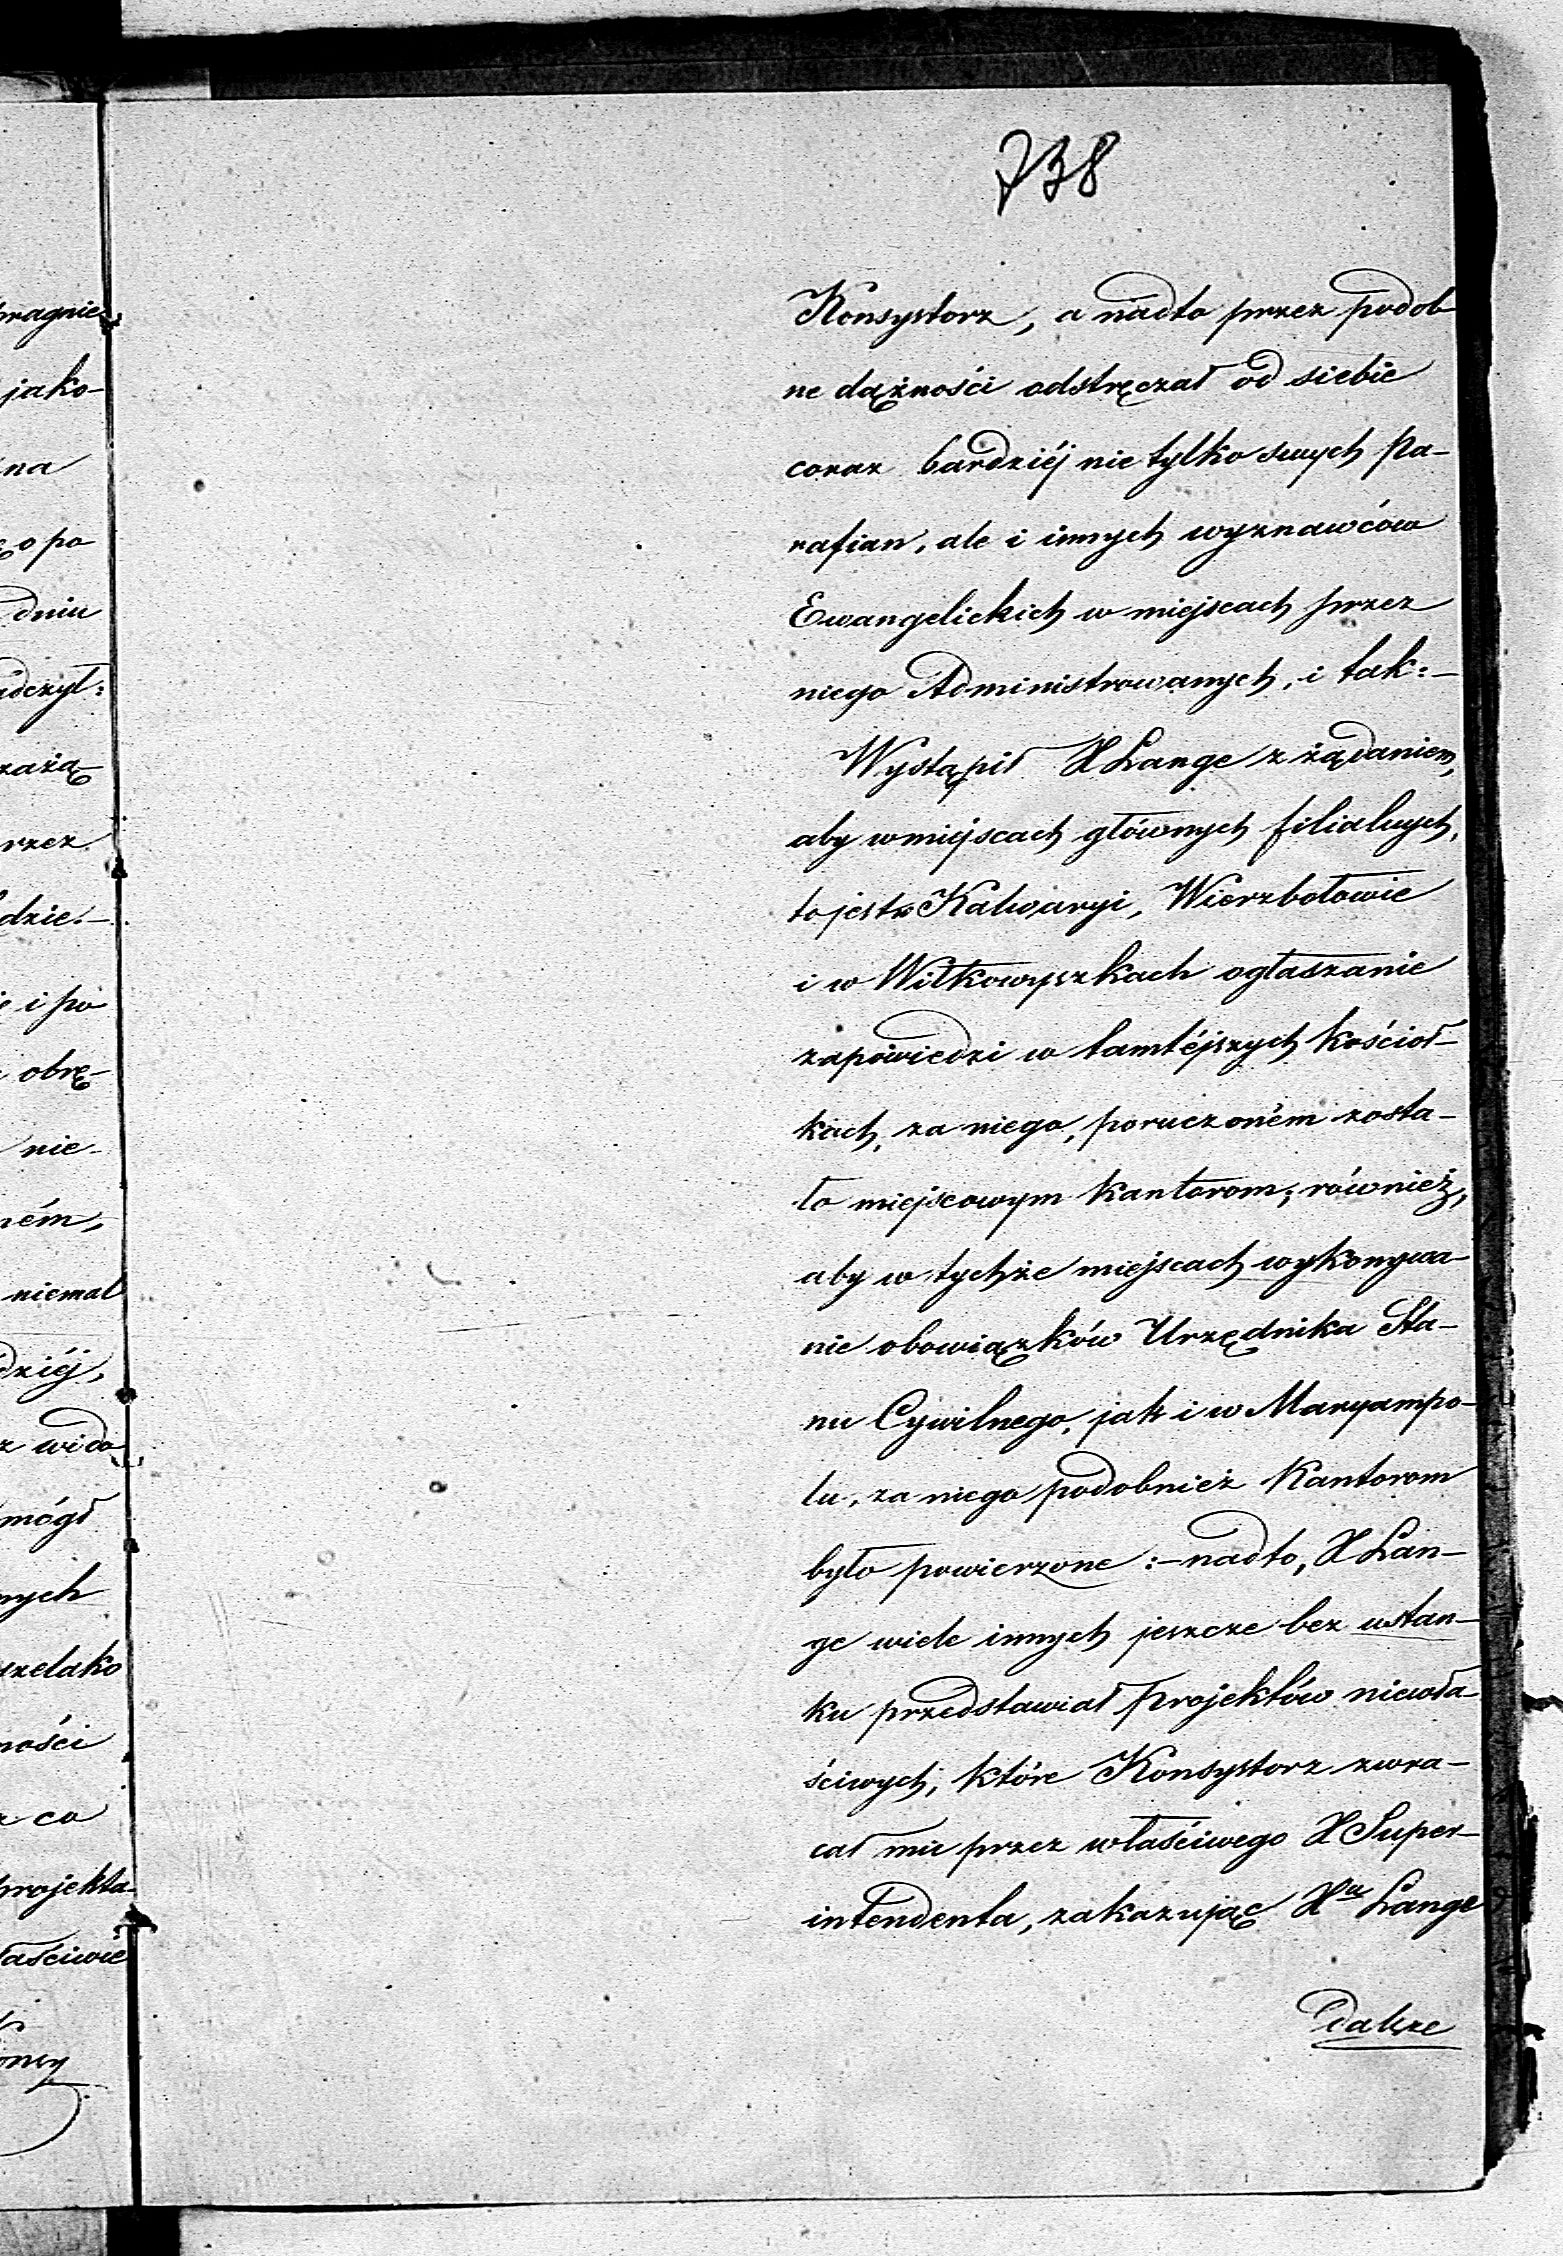 738
Konsystorz, a nadto przez podob-
ne dążności odstręczał od siebie
coraz bardziéj nie tylko swych Pa-
rafian, ale i innych wyznawców
Ewangelickich w miejscach przez
niego Administrowanych, i tak:-
Wystąpił X Lange z żądaniem,
aby w miejscach głównych filialnych,
to jest w Kalwaryi, Wierzbołowie
i w Wiłkowyszkach ogłaszanie
zapowiedzi w tamtéjszych kościoł-
kach, za niego, poruczoném zosta-
ło miejscowym Kantorom; również,
aby w tychże miejscach wykonywa-
nie obowiązków Urzędnika Sta-
nu Cywilnego, jak i w Maryampo-
lu, za niego podobnież Kantorom
było powierzone:- nadto, X Lan-
ge wiele innych jeszcze bez ustan-
ku przedstawiał projektów niewła-
ściwych, które Konsystorz zwra-
cał mu przez właściwego X Super-
intendenta, zakazując Xu Lange
dalsze
pragnie
jako-
na
o po
dniu
adczył:
zażą-
rzez
dzie.-
i po
obrę-
nie-
ném,
niemal
dziéj,
z wido-
mógł
nych
szelako
ności
co
projekta-
łaściwie